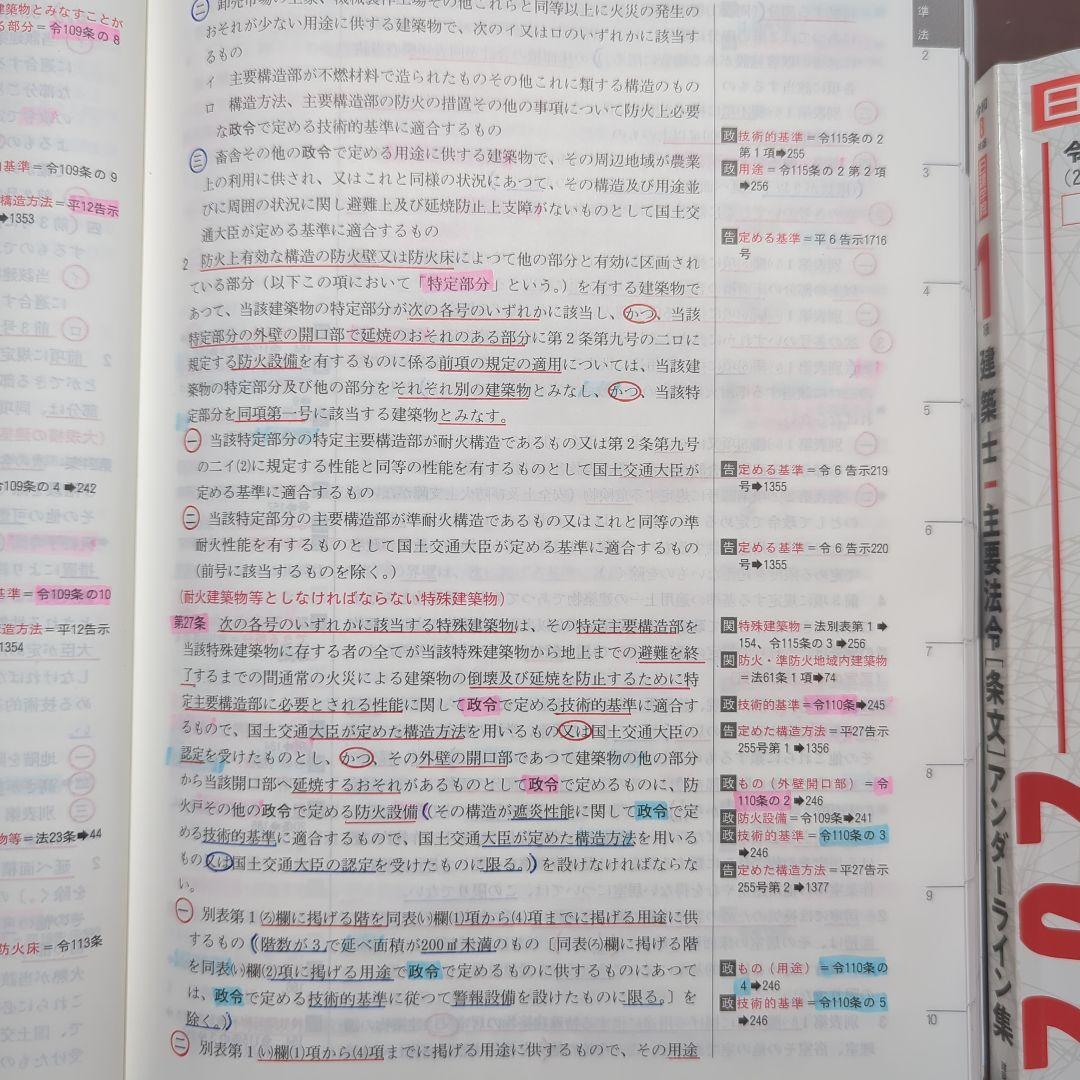 築物とみなすことが
る部分＝令109条の8
基準＝令109条の9
構造方法＝平12告示
➡1353
109条の4➡242
基準＝令109条の10
造方法＝平12告示
1354
物等＝法23条➡44
防火床＝令113条
おそれが少ない用途に供する建築物で、次のイ又はロのいずれかに該当す
るもの
イ 主要構造部が不燃材料で造られたものその他これに類する構造のもの
ロ 構造方法、主要構造部の防火の措置その他の事項について防火上必要
な政令で定める技術的基準に適合するもの
三 畜舎その他の政令で定める用途に供する建築物で、その周辺地域が農業
上の利用に供され、又はこれと同様の状況にあつて、その構造及び用途並
びに周囲の状況に関し避難上及び延焼防止上支障がないものとして国土交
通大臣が定める基準に適合するもの
2 防火上有効な構造の防火壁又は防火床によつて他の部分と有効に区画され
ている部分（以下この項において「特定部分」という。）を有する建築物で
あつて、当該建築物の特定部分が次の各号のいずれかに該当し、かつ、当該
特定部分の外壁の開口部で延焼のおそれのある部分に第2条第九号の二ロに
規定する防火設備を有するものに係る前項の規定の適用については、当該建
築物の特定部分及び他の部分をそれぞれ別の建築物とみなし、かつ、当該特
定部分を同項第一号に該当する建築物とみなす。
一 当該特定部分の特定主要構造部が耐火構造であるもの又は第2条第九号
の二イ⑵に規定する性能と同等の性能を有するものとして国土交通大臣が
定める基準に適合するもの
二 当該特定部分の主要構造部が準耐火構造であるもの又はこれと同等の準
耐火性能を有するものとして国土交通大臣が定める基準に適合するもの
（前号に該当するものを除く。）
（耐火建築物等としなければならない特殊建築物）
第27条 次の各号のいずれかに該当する特殊建築物は、その特定主要構造部を
当該特殊建築物に存する者の全てが当該特殊建築物から地上までの避難を終
了するまでの間通常の火災による建築物の倒壊及び延焼を防止するために特
定主要構造部に必要とされる性能に関して政令で定める技術的基準に適合す
るもので、国土交通大臣が定めた構造方法を用いるもの又は国土交通大臣の
認定を受けたものとし、かつ、その外壁の開口部であつて建築物の他の部分
から当該開口部へ延焼するおそれがあるものとして政令で定めるものに、防
火戸その他の政令で定める防火設備（その構造が遮炎性能に関して政令で定
める技術的基準に適合するもので、国土交通大臣が定めた構造方法を用いる
もの又は国土交通大臣の認定を受けたものに限る。）を設けなければならな
い。
一 別表第1㋺欄に掲げる階を同表㋑欄⑴項から⑷項までに掲げる用途に供
するもの（階数が3で延べ面積が200㎡未満のもの〔同表㋺欄に掲げる階
を同表㋑欄⑵項に掲げる用途で政令で定めるものに供するものにあつて
は、政令で定める技術的基準に従つて警報設備を設けたものに限る。〕を
除く。）
二 別表第1㋑欄⑴項から⑷項までに掲げる用途に供するもので、その用途
政 技術的基準＝令115条の2
第1項➡255
政 用途＝令115条の2第2項
➡256
告 定める基準＝平6告示1716
号
告 定める基準＝令6告示219
号➡1355
告 定める基準＝令6告示220
号➡1355
関 特殊建築物＝法別表第1➡
154、令115条の3➡256
関 防火・準防火地域内建築物
＝法61条1項➡74
政 技術的基準＝令110条➡245
告 定めた構造方法＝平27告示
255号第1➡1356
政 もの（外壁開口部）＝令
110条の2➡246
政 防火設備＝令109条➡241
政 技術的基準＝令110条の3
➡246
告 定めた構造方法＝平27告示
255号第2➡1377
政 もの（用途）＝令110条の
4➡246
政 技術的基準＝令110条の5
➡246
準
法
2
3
4
5
6
7
8
9
10
1
建築士
主要法令［条文］アンダーライン集